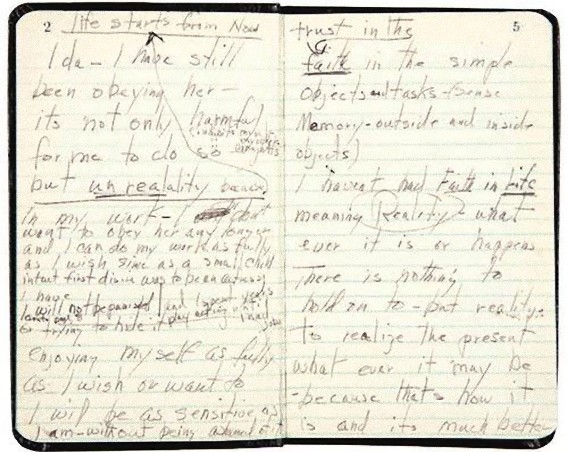 2
life starts from Now
Ida – I have still
been obeying her –
its not only harmful
for me to do so
but unreality because
In my work – I
want to obey her any longer
and I can do my work as fully
as I wish since as a small child
intact first was to be an actress
I will not be punished
or trying to hide it
enjoying myself as fully
as I wish or want to
I will be as sensitive as
I am – without being ashamed of it
5
trust in the
faith in the simple
objects and tasks – Sense
Memory – outside and inside
objects)
I havent had Faith in Life
meaning Reality – what
ever it is or happens
There is nothing to
hold on to – but reality:
to realize the present
what ever it may be
– because that's how it
is and its much better